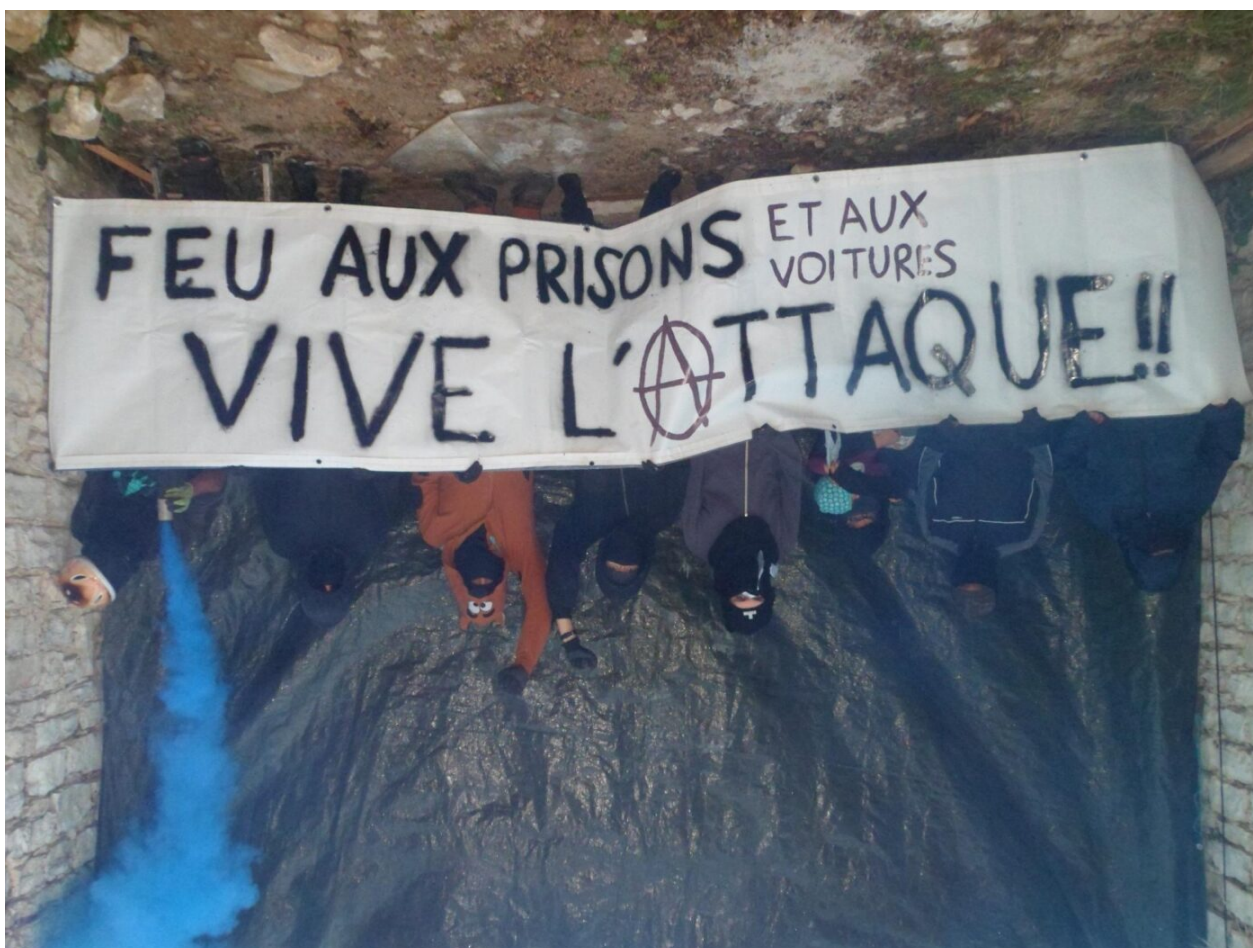 FEU AUX PRISONS ET AUX
VOITURES
VIVE L'ATTAQUE!!